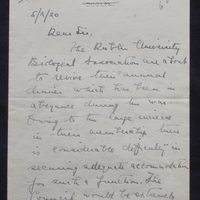 5/2/20
Dear Sir,
The Dublin University
Biological Association are about
to revive their annual
dinner which has been in
abeyance during the war.
Owing to the large increase
in their membership there
is considerable difficulty in
securing adequate accommodation
for such a function. The
Council would be extremely